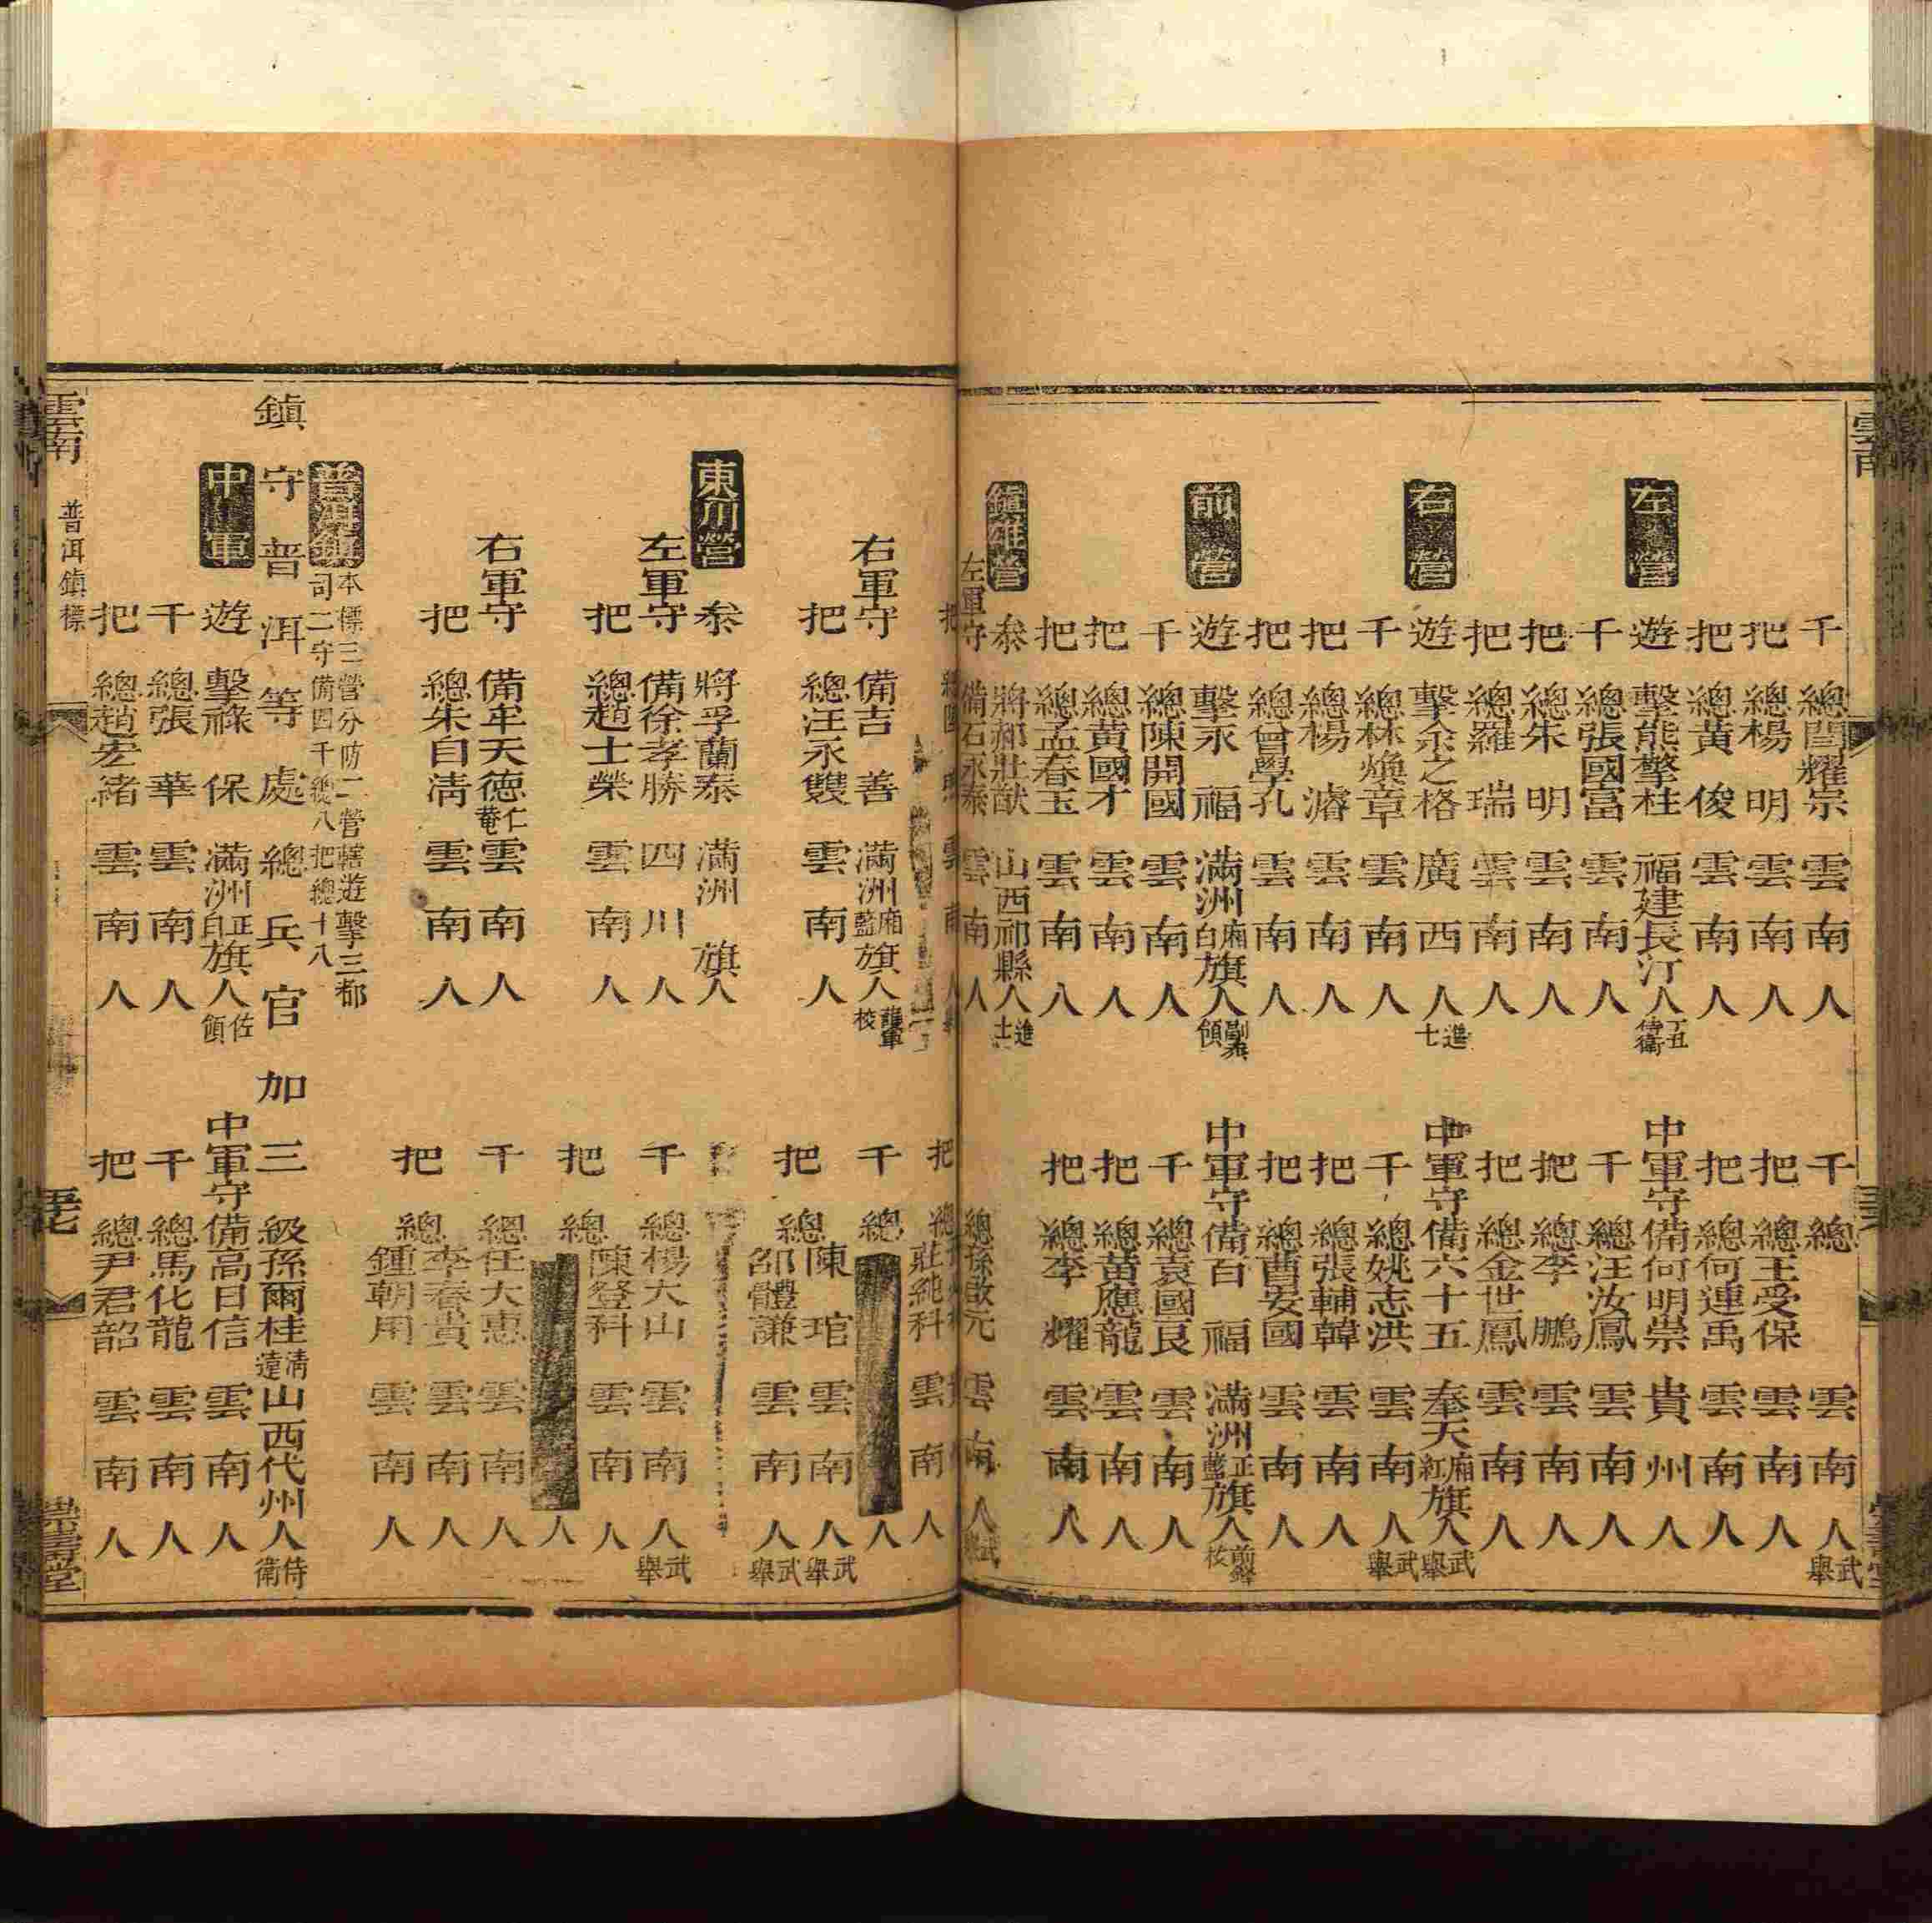 雲南
千總閻耀宗雲南人
千總 雲南人武舉
把總楊 明雲南人
把總王受保雲南人
把總黃 俊雲南人
把總何連禹雲南人
左營
遊擊熊擎柱福建長汀人丁丑侍衛
中軍守備何明崇貴州人
千總張國富雲南人
千總汪汝鳳雲南人
把總朱 明雲南人
把總李 鵬雲南人
把總羅 瑞雲南人
把總金世鳳雲南人
右營
遊擊余之格廣西人進士
中軍守備六十五奉天廂紅旗人武舉
千總林煥章雲南人
千總姚志洪雲南人武舉
把總楊 濬雲南人
把總張輔韓雲南人
把總曾學孔雲南人
把總曹安國雲南人
前營
遊擊永 福滿洲廂白旗人副叅領
中軍守備百 福滿洲正藍旗人前鋒校
千總陳開國雲南人
千總袁國良雲南人
把總黃國才雲南人
把總黃應龍雲南人
把總孟春玉雲南人
把總李 耀雲南人
鎮雄營
叅將郝壯猷山西祁縣人進士
左軍守備石永泰雲南人
總孫啟元雲南人武
把總莊純科雲南人
右軍守備吉 善滿洲廂藍旗人護軍校
千總 人
把總汪永龑雲南人
把總陳 琯雲南人武舉
邵體謙雲南人武舉
東川營
叅將孚蘭泰滿洲 旗人
左軍守備徐孝勝四川人
千總楊大山雲南人武舉
把總趙士榮雲南人
把總陳登科雲南人
人
右軍守備牟天德仁菴雲南人
千總任大惠雲南人
把總朱自清雲南人
把總李春貴雲南人
鍾朝用雲南人
普洱鎮
本標三營分防二營轄遊擊三都
司二守備四千總八把總十八
鎮守普洱等處總兵官加三級孫爾桂清遠山西代州人侍衛
中軍
遊擊祿 保滿洲正白旗人佐領
中軍守備高日信雲南人
千總張 華雲南人
千總馬化龍雲南人
把總趙宏緒雲南人
把總尹君韶雲南人
雲南 普洱鎮標 崇壽堂